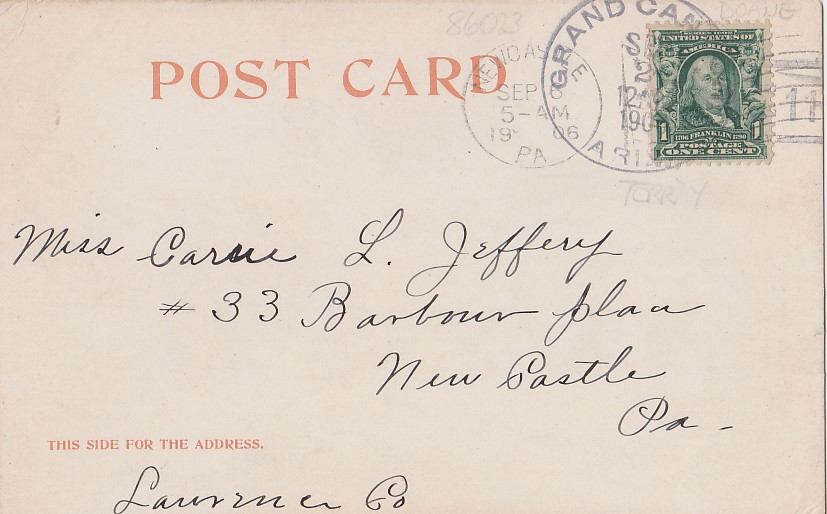 86023
DOANE
POST CARD
NEW CASTLE
SEP
5-AM
19 06
PA
GRAND CAN
12
190
ARI
SERIES 1902
UNITED STATES OF
AMERICA
1 1706 FRANKLIN 1790 1
POSTAGE
ONE CENT
11
TORREY
Miss Carrie L. Jeffery
# 33 Barbour place
New Castle
Pa -
THIS SIDE FOR THE ADDRESS.
Lawrence Co